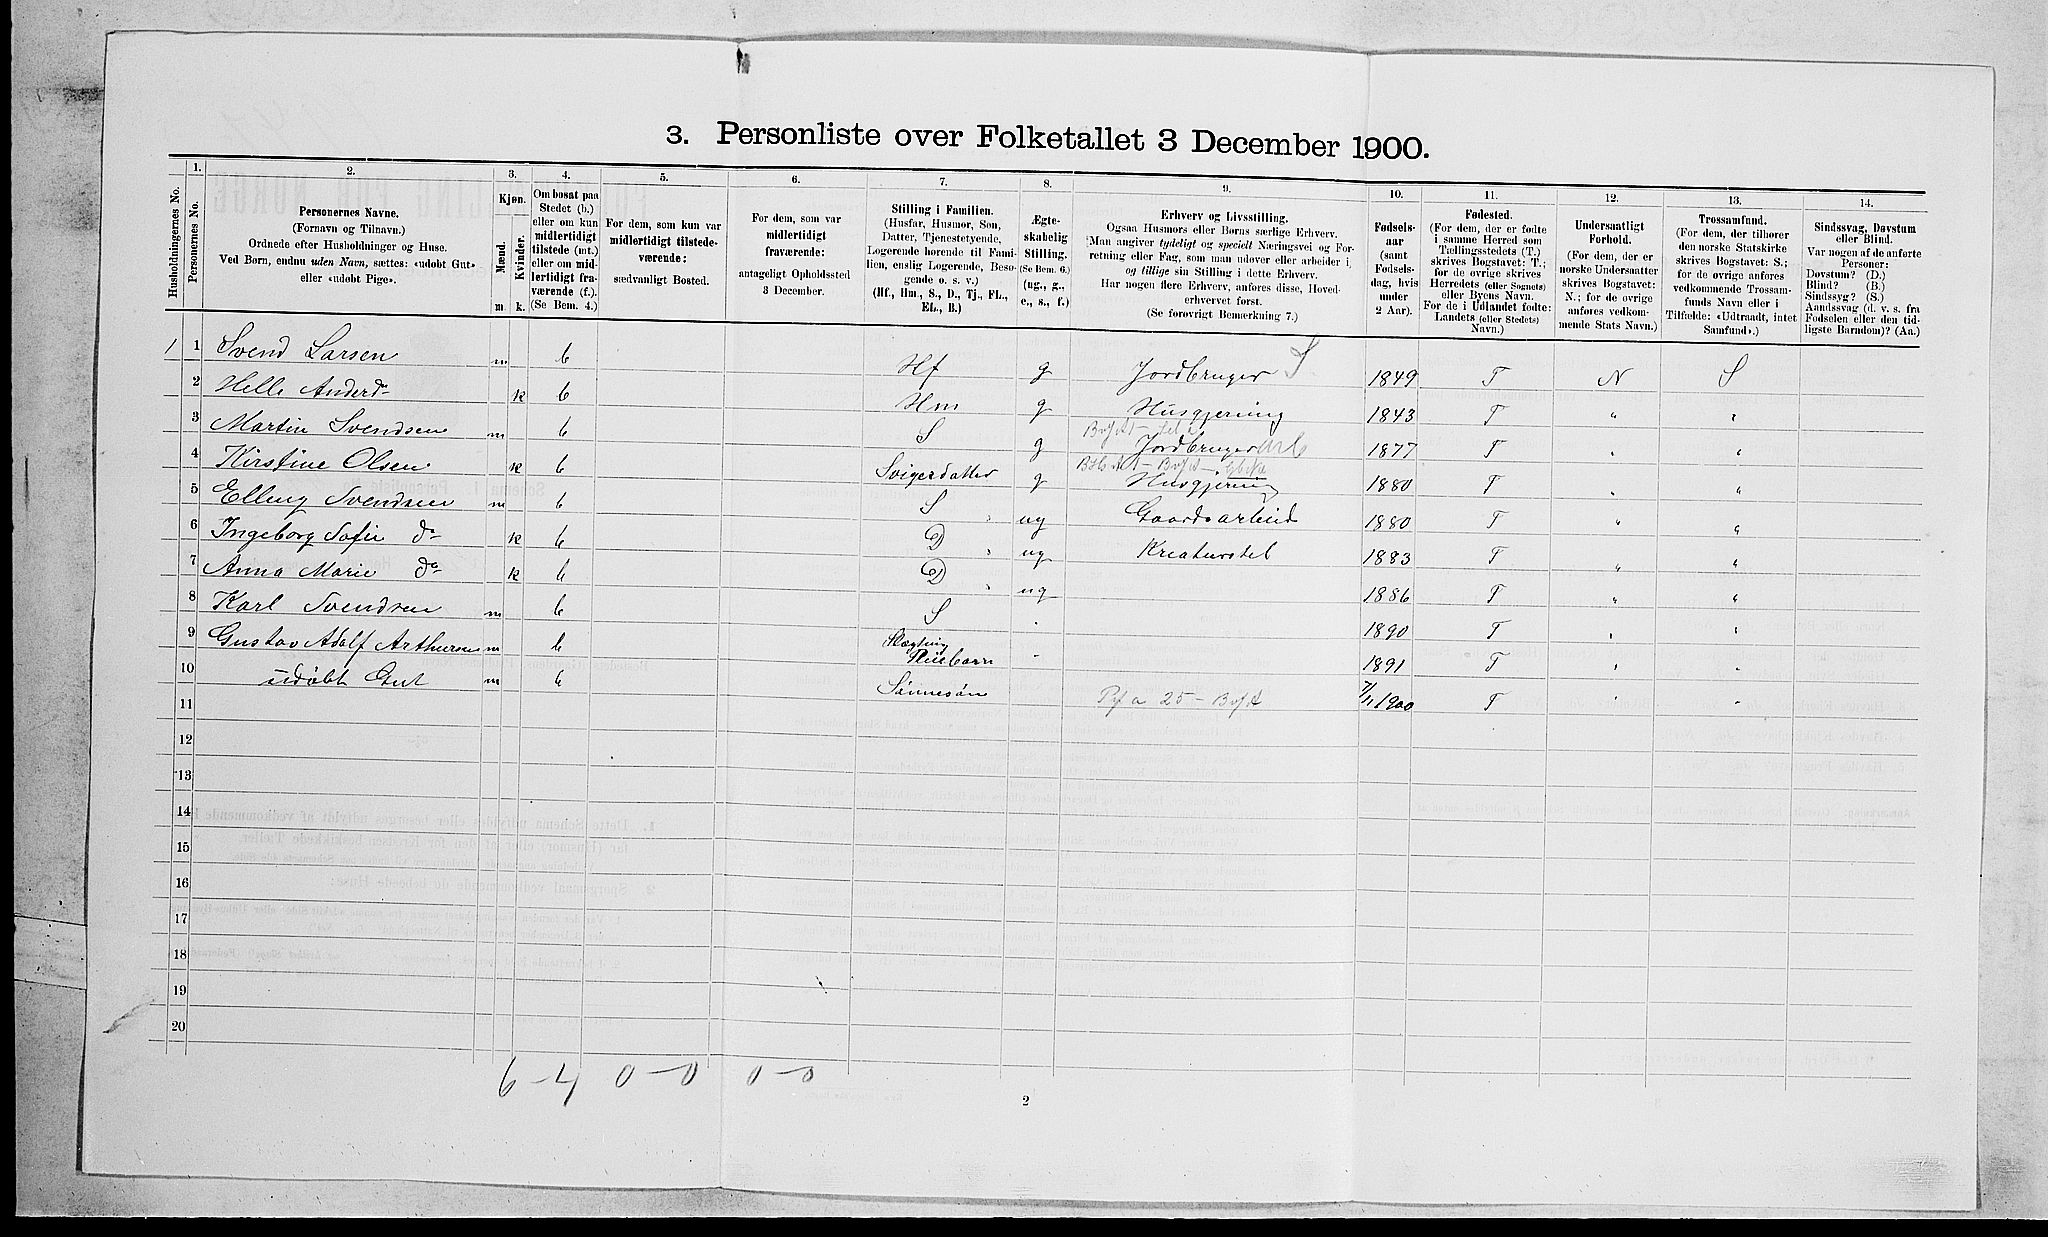 3. Personliste over Folketallet 3 December 1900.
Husholdningernes No.
1.
Personernes No.
2.
Personernes Navne.
(Fornavn og Tilnavn.)
Ordnede efter Husholdninger og Huse.
Ved Børn, endnu uden Navn, sættes: «udøbt Gut»
eller «udøbt Pige».
3.
Kjøn.
Mænd.
Kvinder.
m. k.
4.
Om bosat paa
Stedet (b.)
eller om kun
midlertidigt
tilstede (mt.)
eller om mid-
lertidigt fra-
værende (f.).
(Se Bem. 4.)
5.
For dem, som kun var
midlertidigt tilstede-
værende:
sædvanligt Bosted.
6.
For dem, som var
midlertidigt
fraværende:
antageligt Opholdssted
3 December.
7.
Stilling i Familien.
(Husfar, Husmor, Søn,
Datter, Tjenestetyende,
Logerende hørende til Fami-
lien, enslig Logerende, Besø-
gende o. s. v.)
(Hf., Hm., S., D., Tj., FL.,
EL., B.)
8.
Ægte-
skabelig
Stilling.
(Se Bem. 6.)
(ug., g.,
e., s., f.)
9.
Erhverv og Livsstilling.
Ogsaa Husmors eller Børns særlige Erhverv.
Man angiver tydeligt og specielt Næringsvei og For-
retning eller Fag, som man udøver eller arbeider i,
og tillige sin Stilling i dette Erhverv.
Har nogen flere Erhverv, anføres disse, Hoved-
erhvervet først.
(Se forøvrigt Bemærkning 7.)
10.
Fødsels-
aar
(samt
Fødsels-
dag, hvis
under
2 Aar).
11.
Fødested.
(For dem, der er fødte
i samme Herred som
Tællingsstedets (T.)
skrives Bogstavet: T.;
for de øvrige skrives
Herredets (eller Sognets)
eller Byens Navn.
For de i Udlandet fødte:
Landets (eller Stedets)
Navn.)
12.
Undersaatligt
Forhold.
(For dem, der er
norske Undersaatter
skrives Bogstavet:
N.; for de øvrige
anføres vedkom-
mende Stats Navn.)
13.
Trossamfund.
(For dem, der tilhører
den norske Statskirke
skrives Bogstavet: S.;
for de øvrige anføres
vedkommende Trossam-
funds Navn eller i
Tilfælde: «Udtraadt, intet
Samfund».)
14.
Sindssvag, Døvstum
eller Blind.
Var nogen af de anførte
Personer:
Døvstum? (D.)
Blind? (B.)
Sindssyg? (S.)
Aandssvag (d. v. s. fra
Fødselen eller den tid-
ligste Barndom)? (Aa.)
1 1 Svend Larsen m b Hf g Jordbruger S 1849 T N S
2 Helle Andersd k b Hm g Husgjerning 1843 T " "
3 Martin Svendsen m b S g Jordbruger 1877 T " "
4 Kirstine Olsen k b Svigerdatter g Husgjerning 1880 T " "
5 Elling Svendsen m b S ug Gaardsarbeid 1880 T " "
6 Ingeborg Sofie do k b D ug Kreaturstel 1883 T " "
7 Anna Marie do k b D ug 1886 T " "
8 Karl Svendsen m b S - 1890 T " "
9 Gustav Adolf Arthursen m b Slægtning Pleiebarn - 1891 T " "
10 udøbt Gut m b Sønnesøn 7/1 1900 T " "
11
12
13
14
15
16
17
18
19
20
6 - 4 0 - 0 0 - 0
2